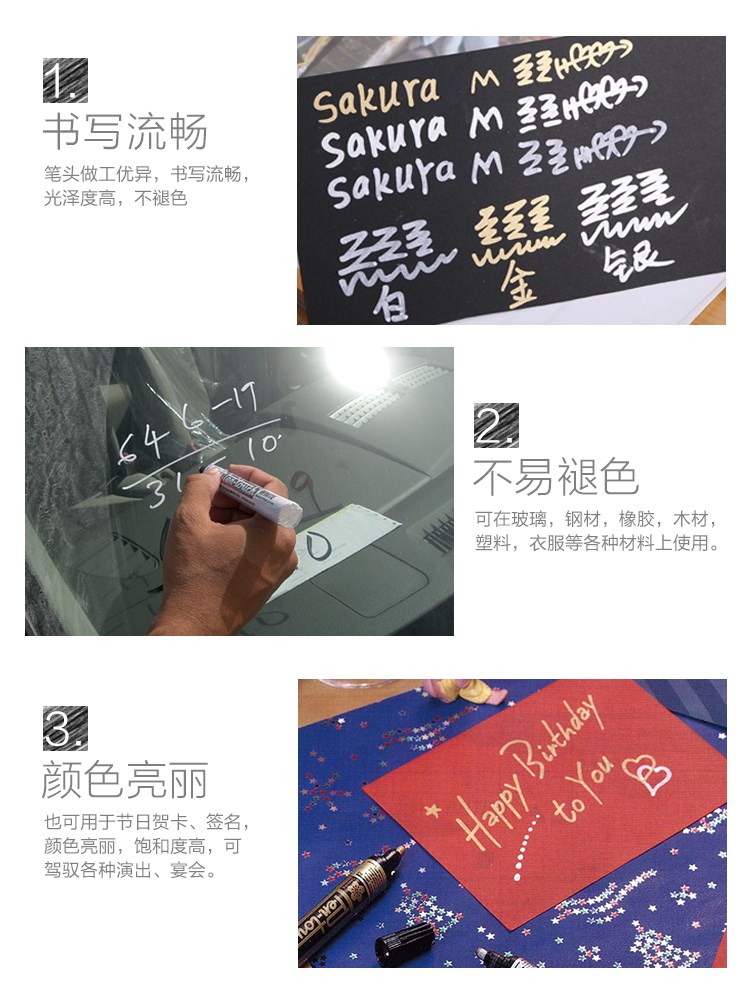 1.
书写流畅
笔头做工优异，书写流畅，
光泽度高，不褪色
Sakura M
Sakura M
Sakura M
白 金 银
64 6-19
31 10
9
0
2.
不易褪色
可在玻璃，钢材，橡胶，木材，
塑料，衣服等各种材料上使用。
3.
颜色亮丽
也可用于节日贺卡、签名，
颜色亮丽，饱和度高，可
驾驭各种演出、宴会。
Happy Birthday
to You